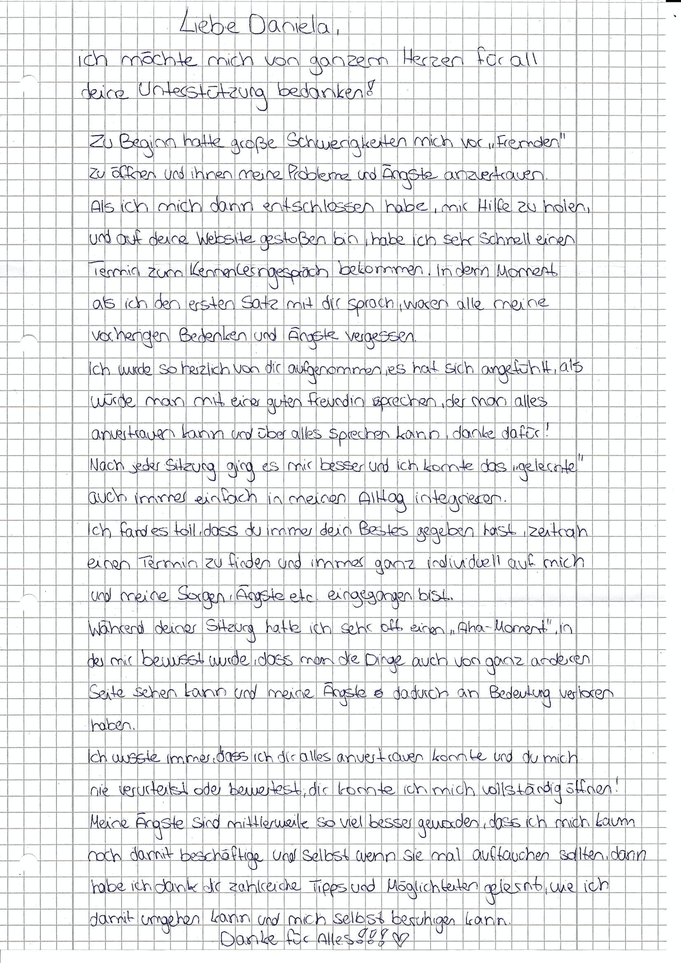 Liebe Daniela,
ich möchte mich von ganzem Herzen für all
deine Unterstützung bedanken!
Zu Beginn hatte große Schwierigkeiten mich vor „Fremden"
zu öffnen und ihnen meine Probleme und Ängste anzvertrauen.
Als ich mich dann entschlossen habe, mir Hilfe zu holen,
und auf deine Website gestoßen bin, habe ich sehr schnell einen
Termin zum Kennenlerngespräch bekommen. In dem Moment
als ich den ersten Satz mit dir sprach, waren alle meine
vorherigen Bedenken und Ängste vergessen.
Ich wurde so herzlich von dir aufgenommen, es hat sich angefühlt, als
würde man mit einer guten Freundin sprechen, der man alles
anvertrauen kann und über alles sprechen kann, danke dafür!
Nach jeder Sitzung ging es mir besser und ich konnte das „gelernte"
auch immer einfach in meinen Alltag integrieren.
Ich fand es toll, dass du immer dein Bestes gegeben hast, zeitnah
einen Termin zu finden und immer ganz individuell auf mich
und meine Sorgen, Ängste etc. eingegangen bist.
Während deiner Sitzung hatte ich sehr oft einen „Aha-Moment", in
der mir bewusst wurde, dass man die Dinge auch von ganz anderen
Seite sehen kann und meine Ängste dadurch an Bedeutung verloren
haben.
Ich wusste immer, dass ich dir alles anvertrauen konnte und du mich
nie verurteilst oder bewertest, dir konnte ich mich vollständig öffnen!
Meine Ängste sind mittlerweile so viel besser geworden, dass ich mich kaum
noch damit beschäftige und selbst wenn sie mal auftauchen sollten, dann
habe ich dank dir zahlreiche Tipps und Möglichkeiten gelernt, wie ich
damit umgehen kann und mich selbst beruhigen kann.
Danke für Alles!!! ♡